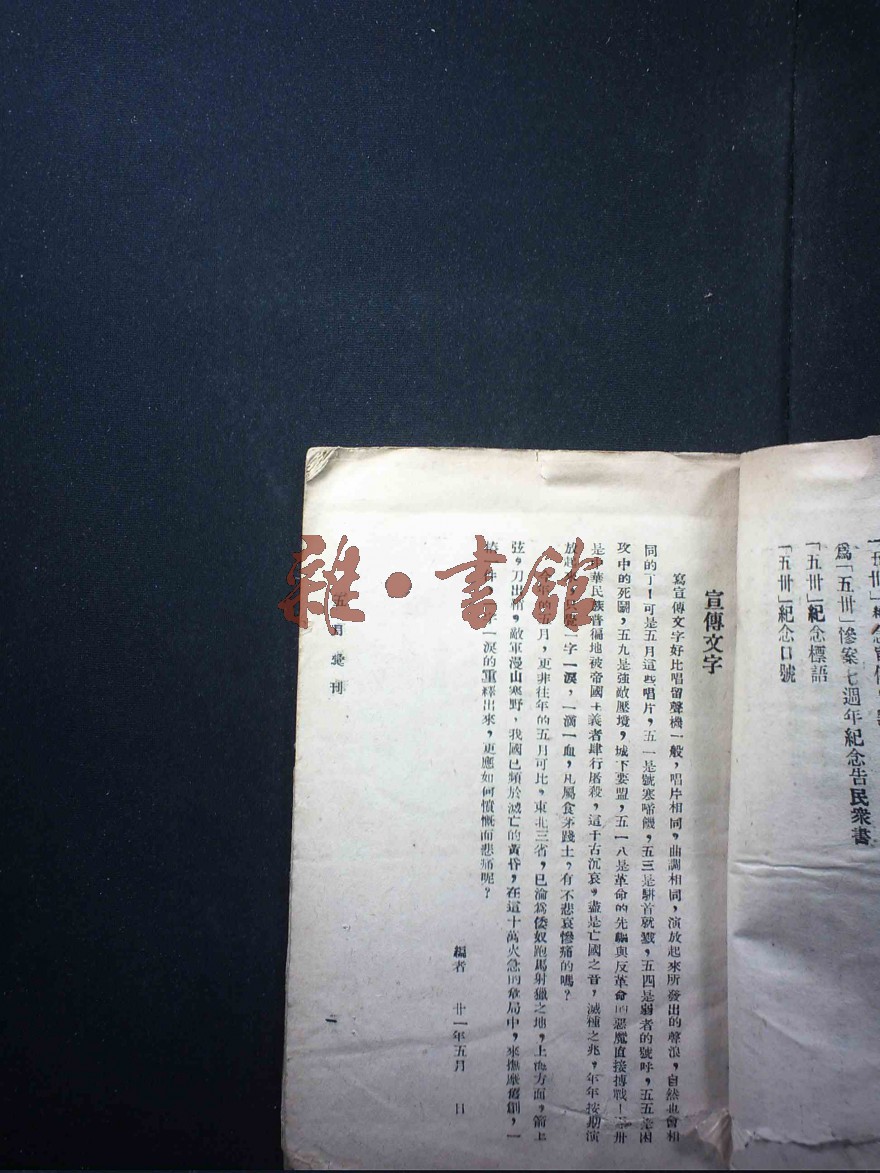 爲「五卅」慘案七週年紀念告民衆書
「五卅」紀念標語
「五卅」紀念口號
宣傳文字
寫宣傳文字好比唱留聲機一般，唱片相同，曲調相同，演放起來所發出的聲浪，自然也會相
同的了！可是五月這些唱片，五一是號寒啼饑，五三是駢首就戮，五四是弱者的號呼，五五是困
攻中的死鬭，五九是強敵壓境，城下要盟，五一八是革命的先驅與反革命的惡魔直接搏戰！五卅
是中華民族普徧地被帝國主義者肆行屠殺，這千古沉哀，盡是亡國之音，滅種之兆，年年按期演
放起來，一字一淚，一滴一血，凡屬食茅踐土，有不悲哀慘痛的嗎？
年的五月，更非往年的五月可比，東北三省，已淪爲倭奴跑馬射獵之地，上海方面，箭上
弦，刀出鞘，敵軍漫山塞野，我國已頻於滅亡的黃昏，在這十萬火急的危局中，來撫摩舊創，一
一淚的重繹出來，更應如何憤慨而悲痛呢？
編者　廿一年五月　日
五月彙刊
一
雜·書館